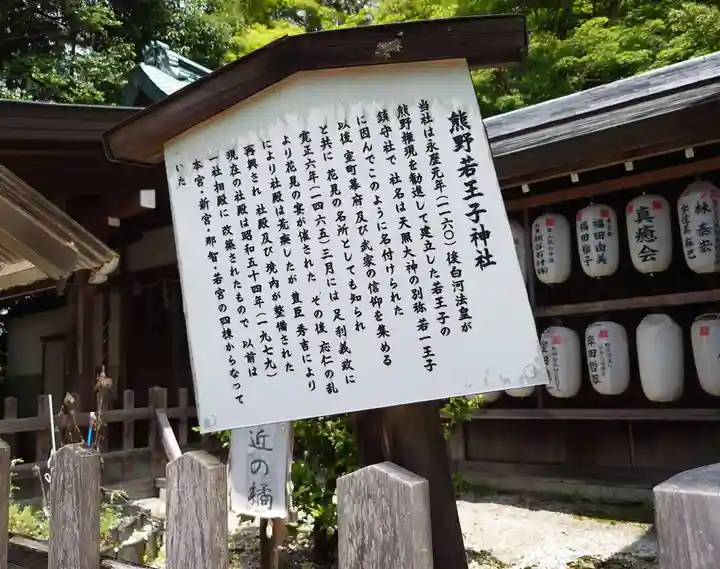 熊野若王子神社
当社は永歴元年（一一六〇）後白河法皇が
熊野権現を勧進して建立した若王子の
鎮守社で 社名は天照大神の別称 若一王子
に因んでこのように名付けられた
以後 室町幕府及び武家の信仰を集める
と共に 花見の名所としても知られ
寛正六年（一四六五）三月には 足利義政に
より花見の宴が催された その後 応仁の乱
により社殿は荒廃したが 豊臣秀吉により
再興され 社殿及び境内が整備された
現在の社殿は昭和五十四年（一九七九）
一社相殿に 改築されたもので 以前は
本宮・新宮・那智・若宮の四棟からなって
いた
林泰岩
真癒会
福田由美
福田雅子
岸田哲蓉
近の橘